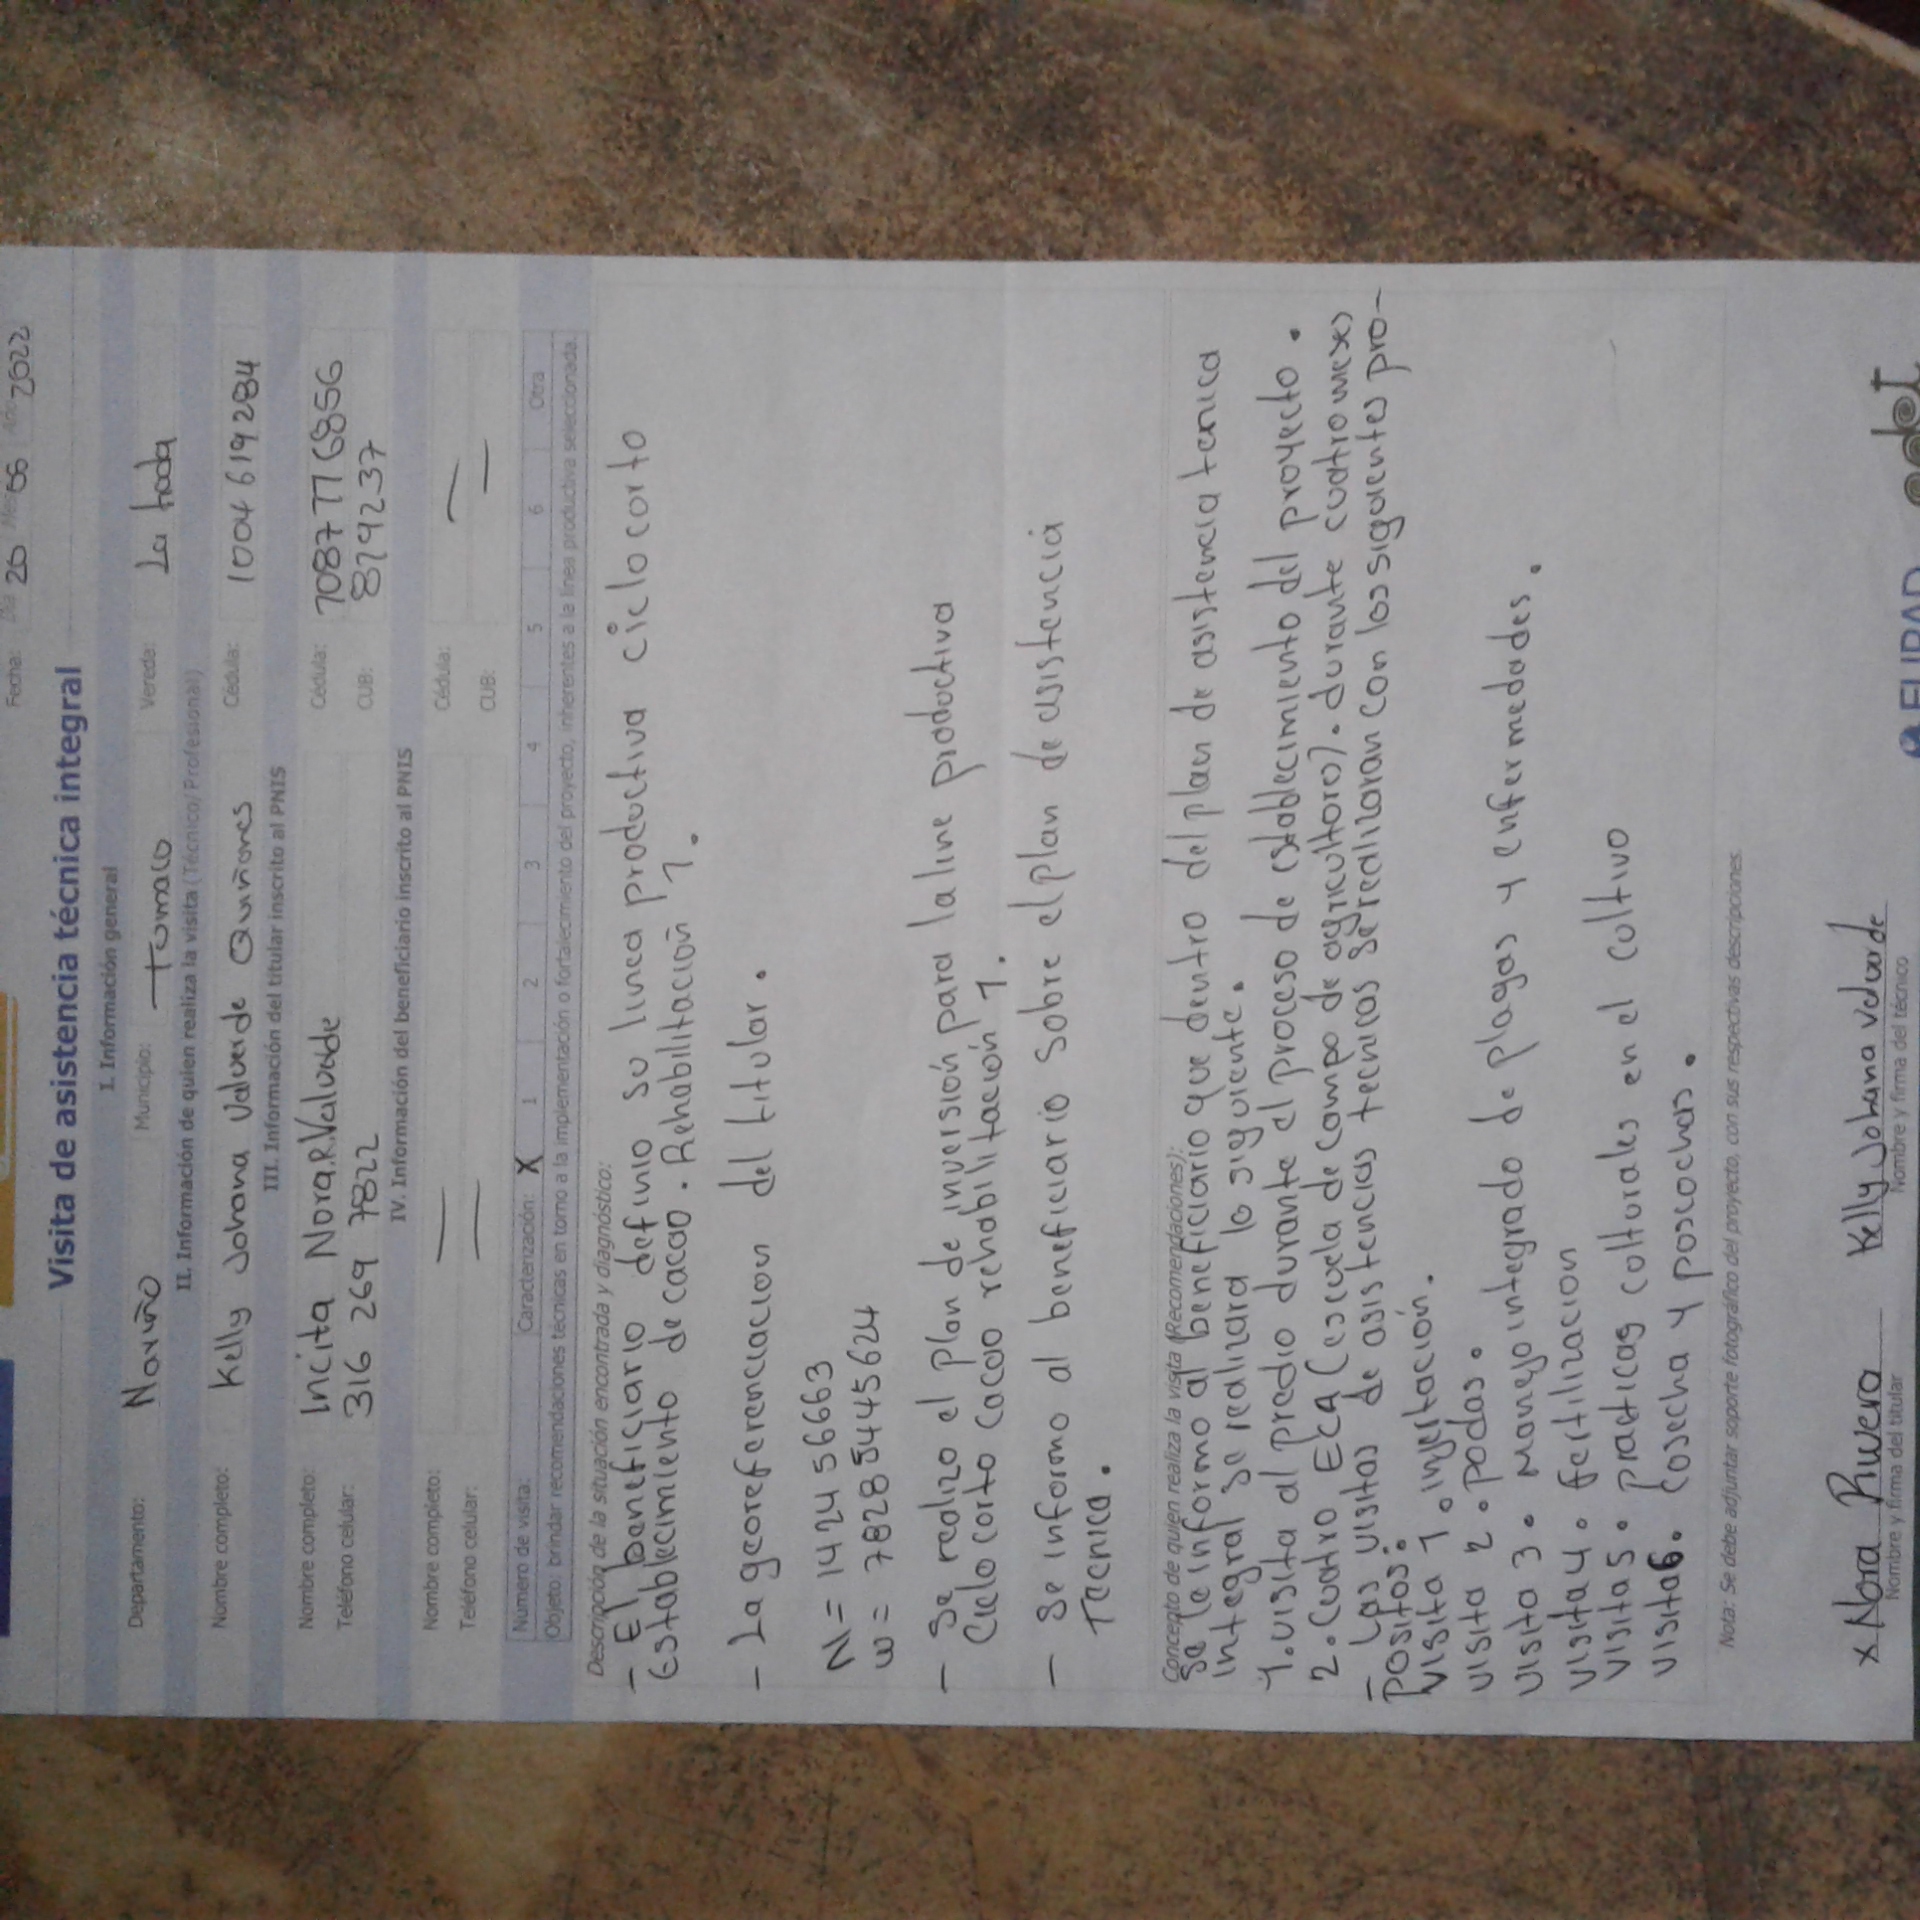 Fecha: Día 26 Mes 06 Año 2022
Visita de asistencia técnica integral
I. Información general
Departamento: Nariño Municipio: Tumaco Vereda: La honda
II. Información de quien realiza la visita (Técnico/Profesional)
Nombre completo: Kelly Johana Valverde Quiñones Cédula: 1004619284
III. Información del titular inscrito al PNIS
Nombre completo: Incita Nora.R.Valvede Cédula: 1087776856
Teléfono celular: 316 269 7822 CUB: 879237
IV. Información del beneficiario inscrito al PNIS
Nombre completo: Cédula:
Teléfono celular: CUB:
Número de visita: Caracterización: X 1 2 3 4 5 6 Otra
Objeto: brindar recomendaciones técnicas en torno a la implementación o fortalecimiento del proyecto, inherentes a la línea productiva seleccionada.
Descripción de la situación encontrada y diagnóstico:
- El beneficiario definio su linea productiva ciclo corto
Establecimiento de cacao. Rehabilitación 1.
- La georeferenciacion del titular.
N= 142456663
w= 78285445624
- Se realizo el plan de inversión para la line productiva
Ciclo corto cacao rehabilitación 1.
- Se informo al beneficiario sobre el plan de asistencia
Tecnica.
Concepto de quien realiza la visita (Recomendaciones):
Se le informo al beneficiario que dentro del plan de asistencia tecnica
integral se realizara lo siguiente.
1. visita al predio durante el proceso de establecimiento del proyecto.
2. Cuatro ECA (escuela de campo de agricultoro). durante cuatro meses
- Las visitas de asistencias tecnicas se realizaran con los siguientes pro-
positos:
visita 1. injertación.
visita 2. podas.
visita 3. Manejo integrado de plagas y enfermedades.
visita 4. fertilizacion
visita 5. practicas colturales en el cultivo
visita 6. Cosecha y poscochas.
Nota: Se debe adjuntar soporte fotográfico del proyecto, con sus respectivas descripciones.
x Nora Rivera Kelly Johana Valverde
Nombre y firma del titular Nombre y firma del técnico